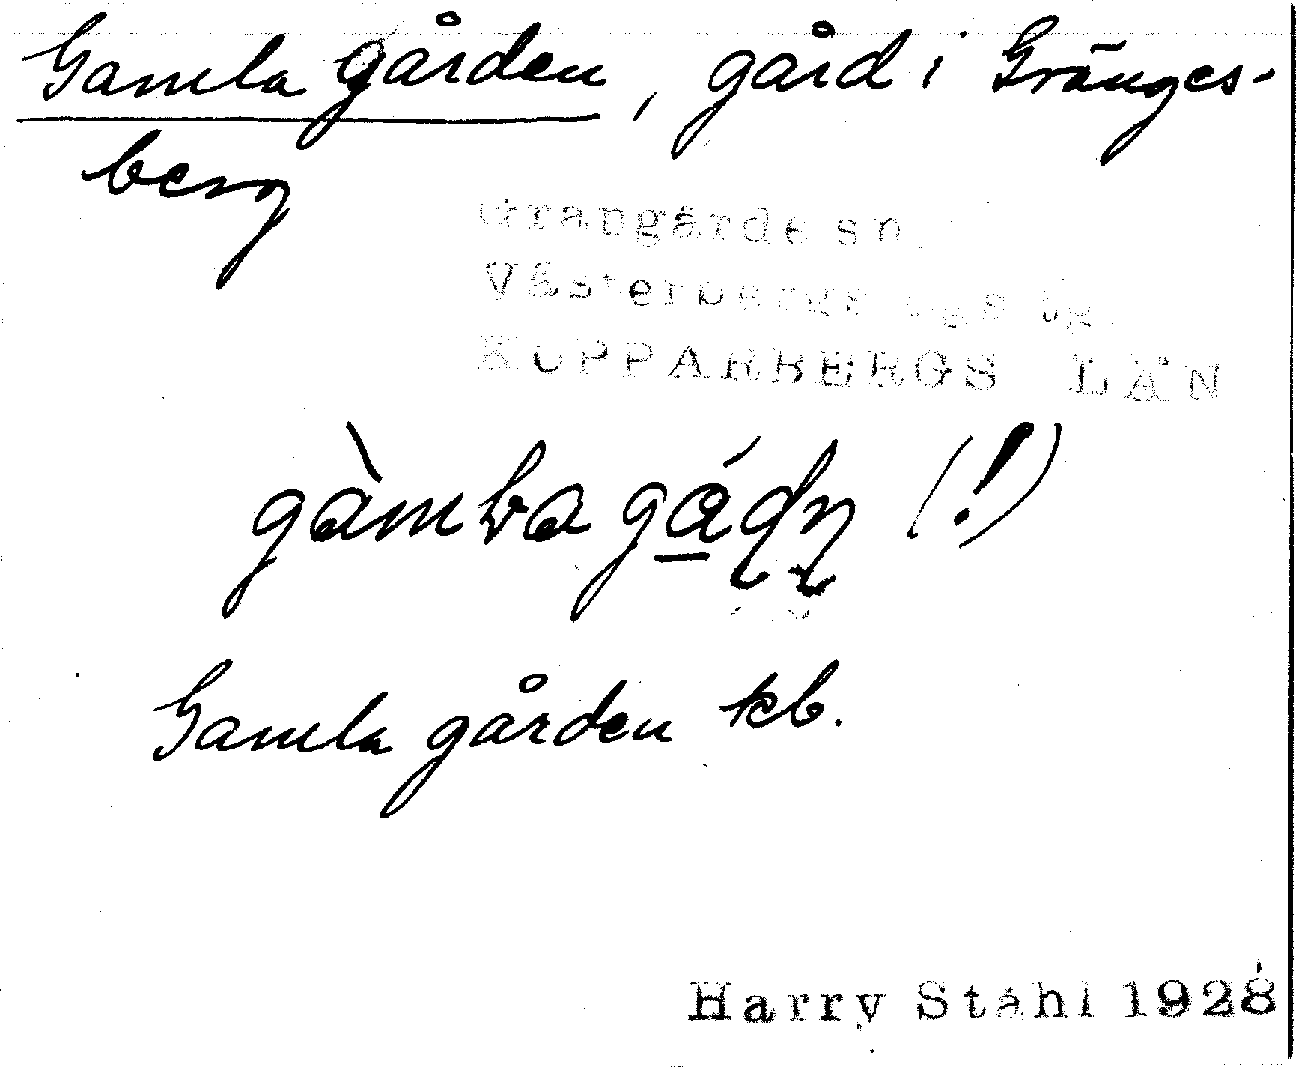 Gamla gården, gård i Gränges-
berg
Grangärde sn.
Västerbergs lgs tg.
KOPPARBERGS LÄN
gàmba gá̱dn (!)
Gamla gården kb.
Harry Ståhl 1928